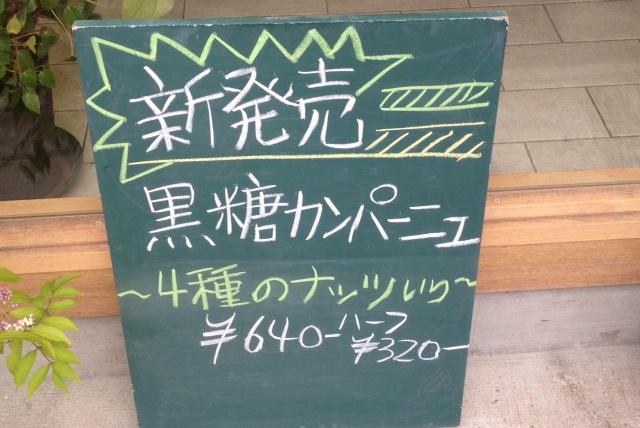 新発売
黒糖カンパーニュ
~4種のナッツいり~
¥640-ハーフ
¥320-